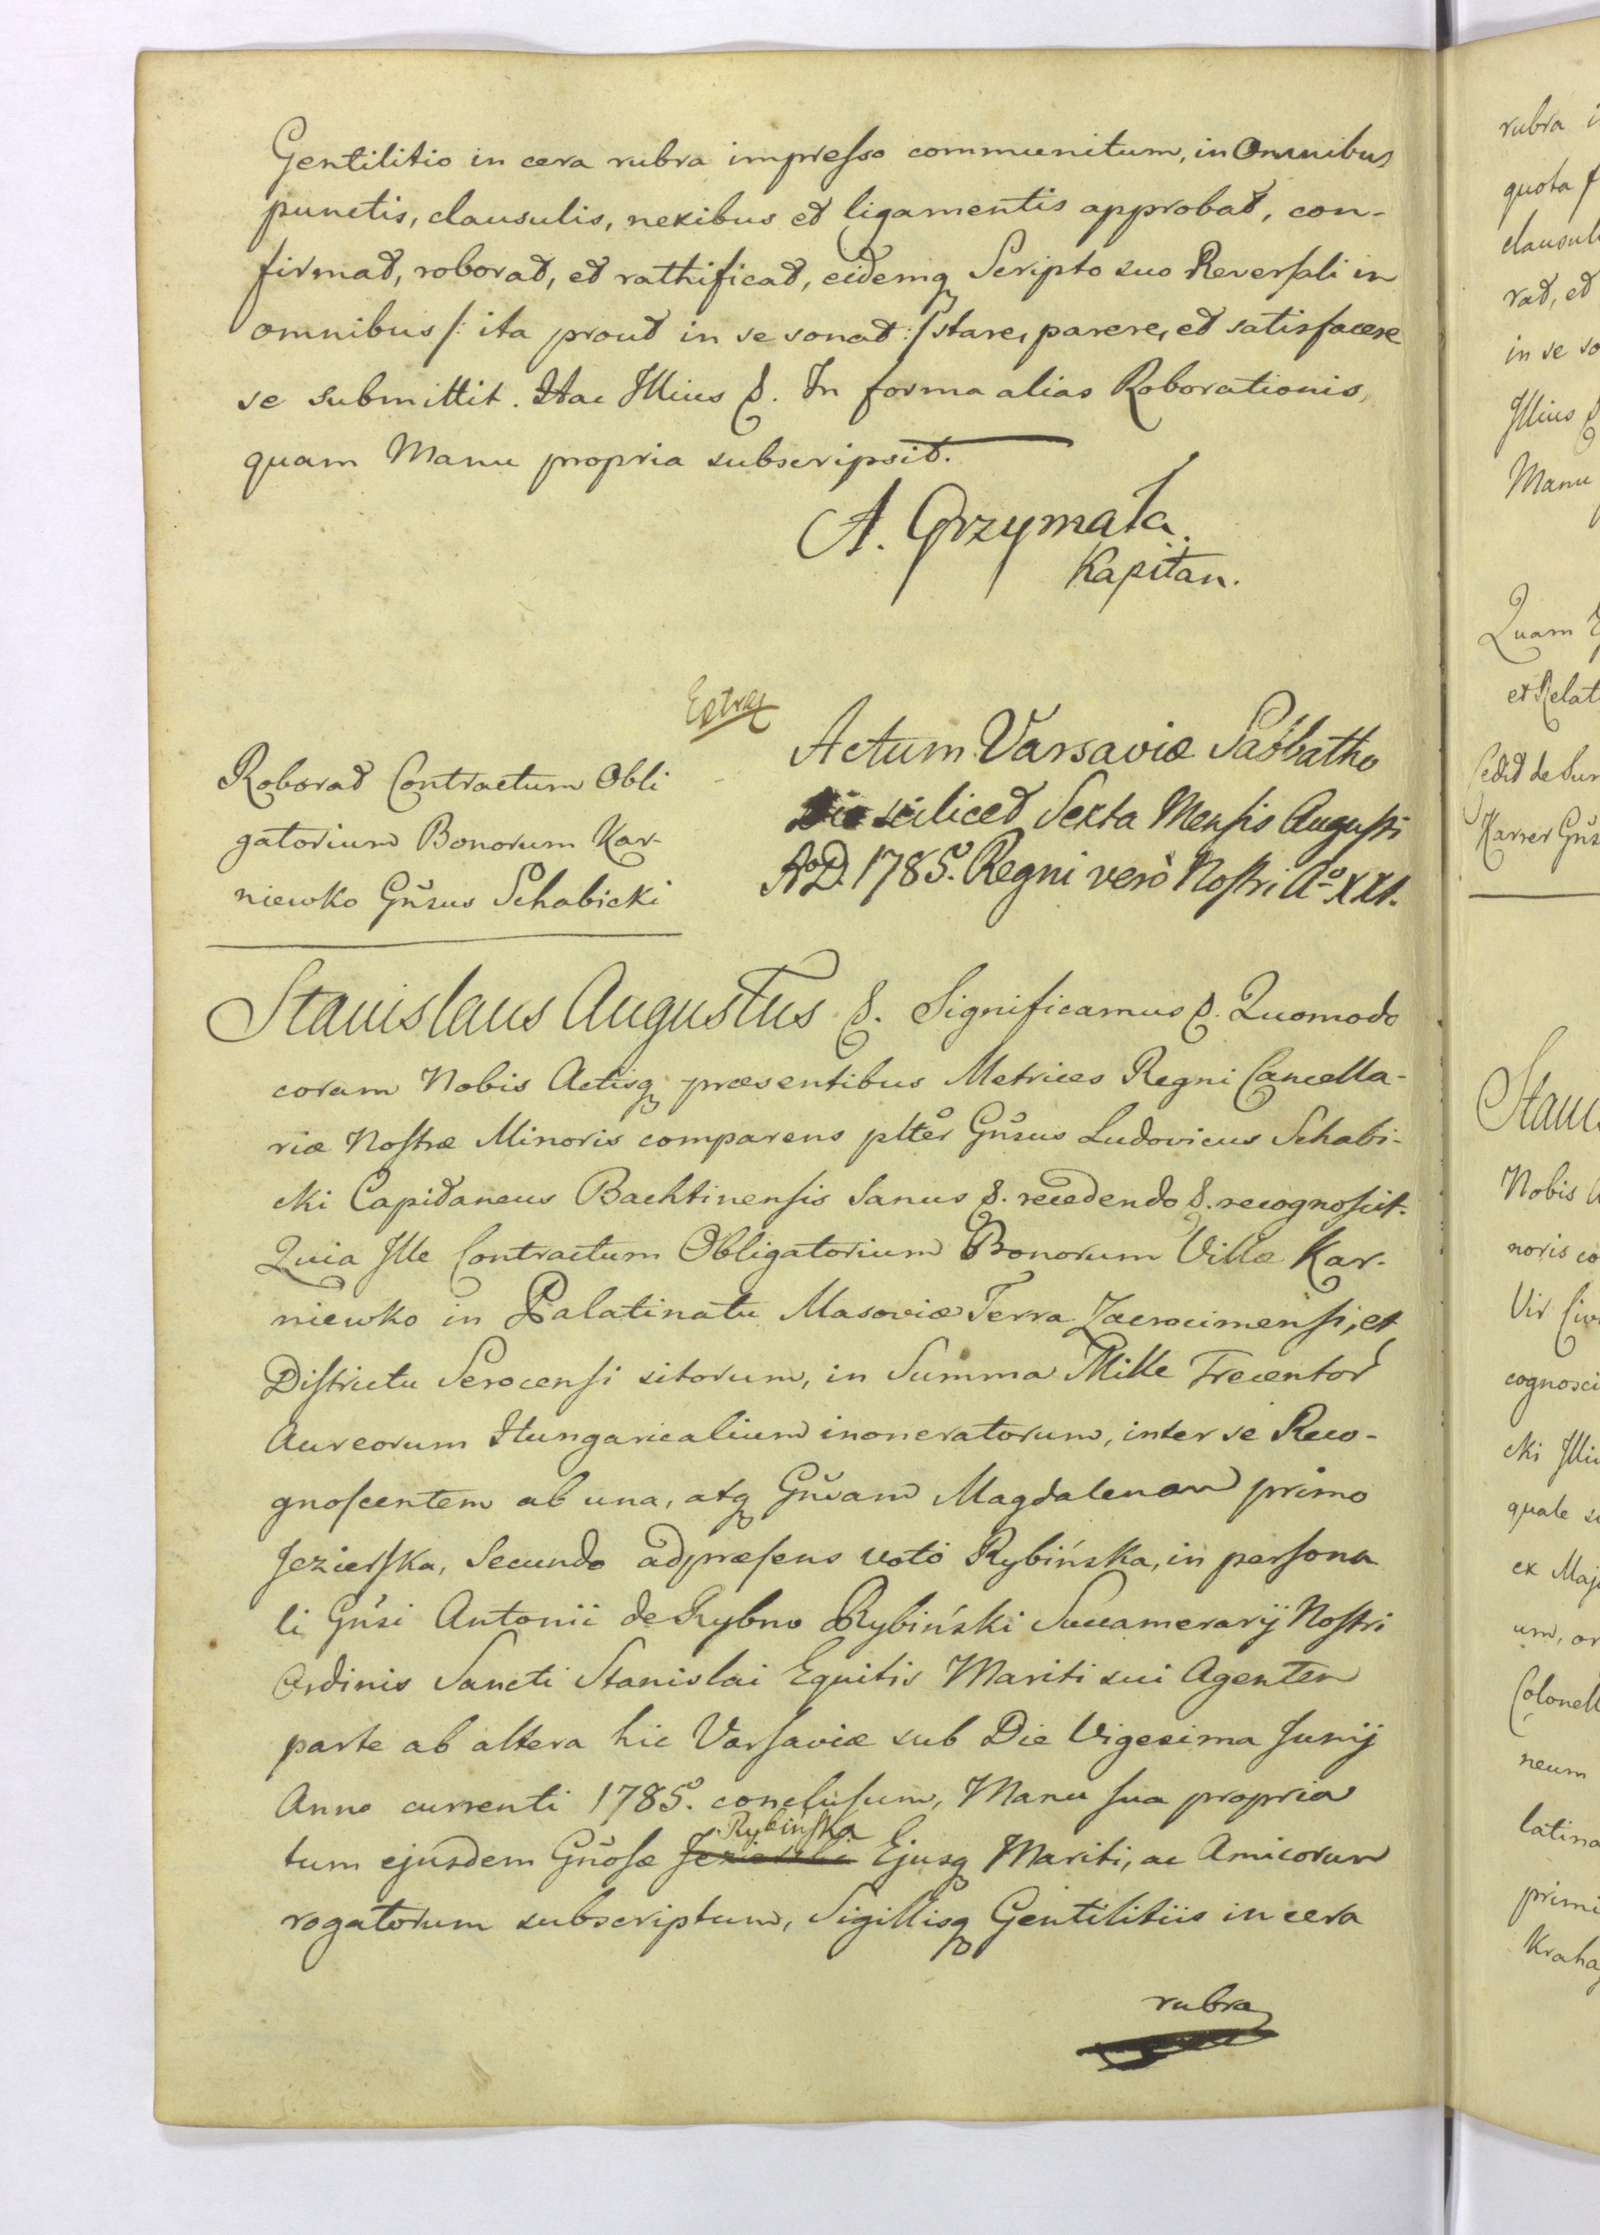 Gentilitio in cera rubra impresso communitum, in Omnibus
punctis, clausulis, nexibus et ligamentis approbat, con-
firmat, roborat, et rathificat, eidemq Scripto suo Reversali in
omnibus /: ita prout in se sonat :/ stare, parere, et satisfacere
se submittit. Hac Illius &. In forma alias Roborationis,
quam Manu propria subscripsit.
A. Grzymała
Kapitan.
Roborat Contractum Obli
gatorium Bonorum Kar-
niewko Gñsus Schabicki
Actum Varsaviæ Sabbatho
Die scilicet Sexta Mensis Augusti
AoD. 1785o. Regni verò Nostri Ao XXI.
Stanislaus Augustus &. Significamus &. Quomodo
coram Nobis Actisq præsentibus Metrices Regni Cancella-
riæ Nostræ Minoris comparens plter Gñsus Ludovicus Schabi-
cki Capitaneus Bachtinensis Sanus &. recedendo &. recognoscit.
Quia Ille Contractum Obligatorium Bonorum Villæ Kar-
niewko in Palatinatu Masoviæ Terra Zacrocimensi, et
Districtu Serocensi sitorum, in Summa Mille Trecentor
Aureorum Hungaricalium inoneratorum, inter se Reco-
gnoscentem ab una, atq Gñsam Magdalenam primo
Jezierska, Secundo adpræsens voto Rybińska, in persona
li Gñsi Antonii de Rybno Rybiński Succamerarij Nostri
Ordinis Sancti Stanislai Equitis Mariti sui Agentem
parte ab altera hic Varsaviæ sub Die Vigesima Junij
Anno currenti 1785o. conclusum, Manu sua propria
Rybińska
tum ejusdem Gñosæ Jezierski Ejusq Mariti, ac Amicorum
rogatorum subscriptum, Sigillisq Gentilitiis in cera
rubra
rubra
quota
Illius
Manu
Quam
et Relat
Nobis
noris co
cognosci
cki
quale
neum
latina
primi